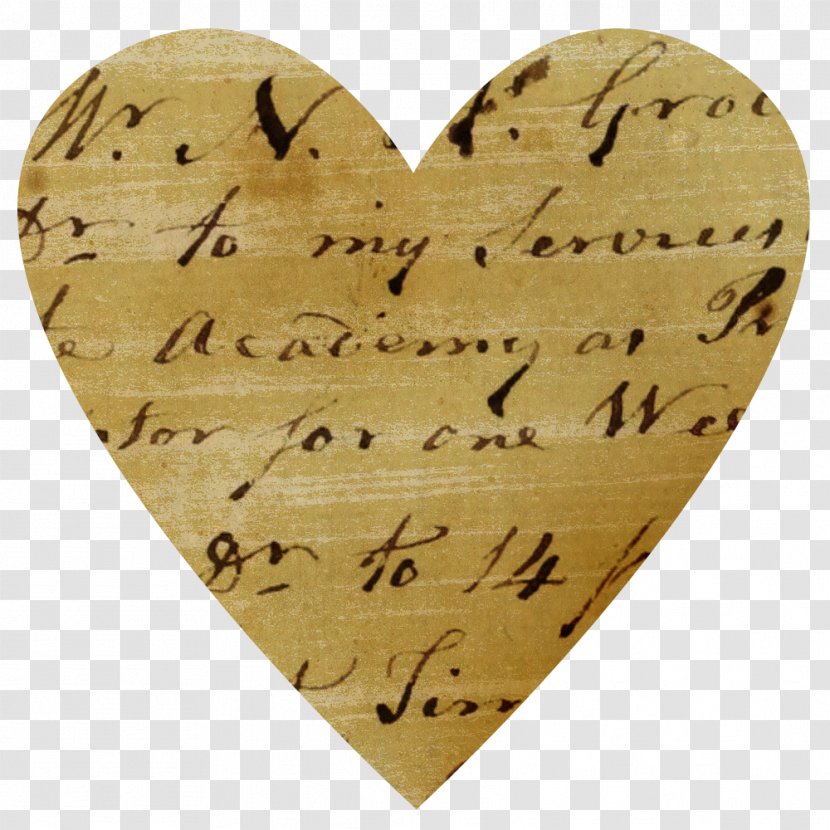 Mr. N. Y. Groc
Dr to my Services
te Academy as Pr
ptor for one Wee
Dr to 14
Tim